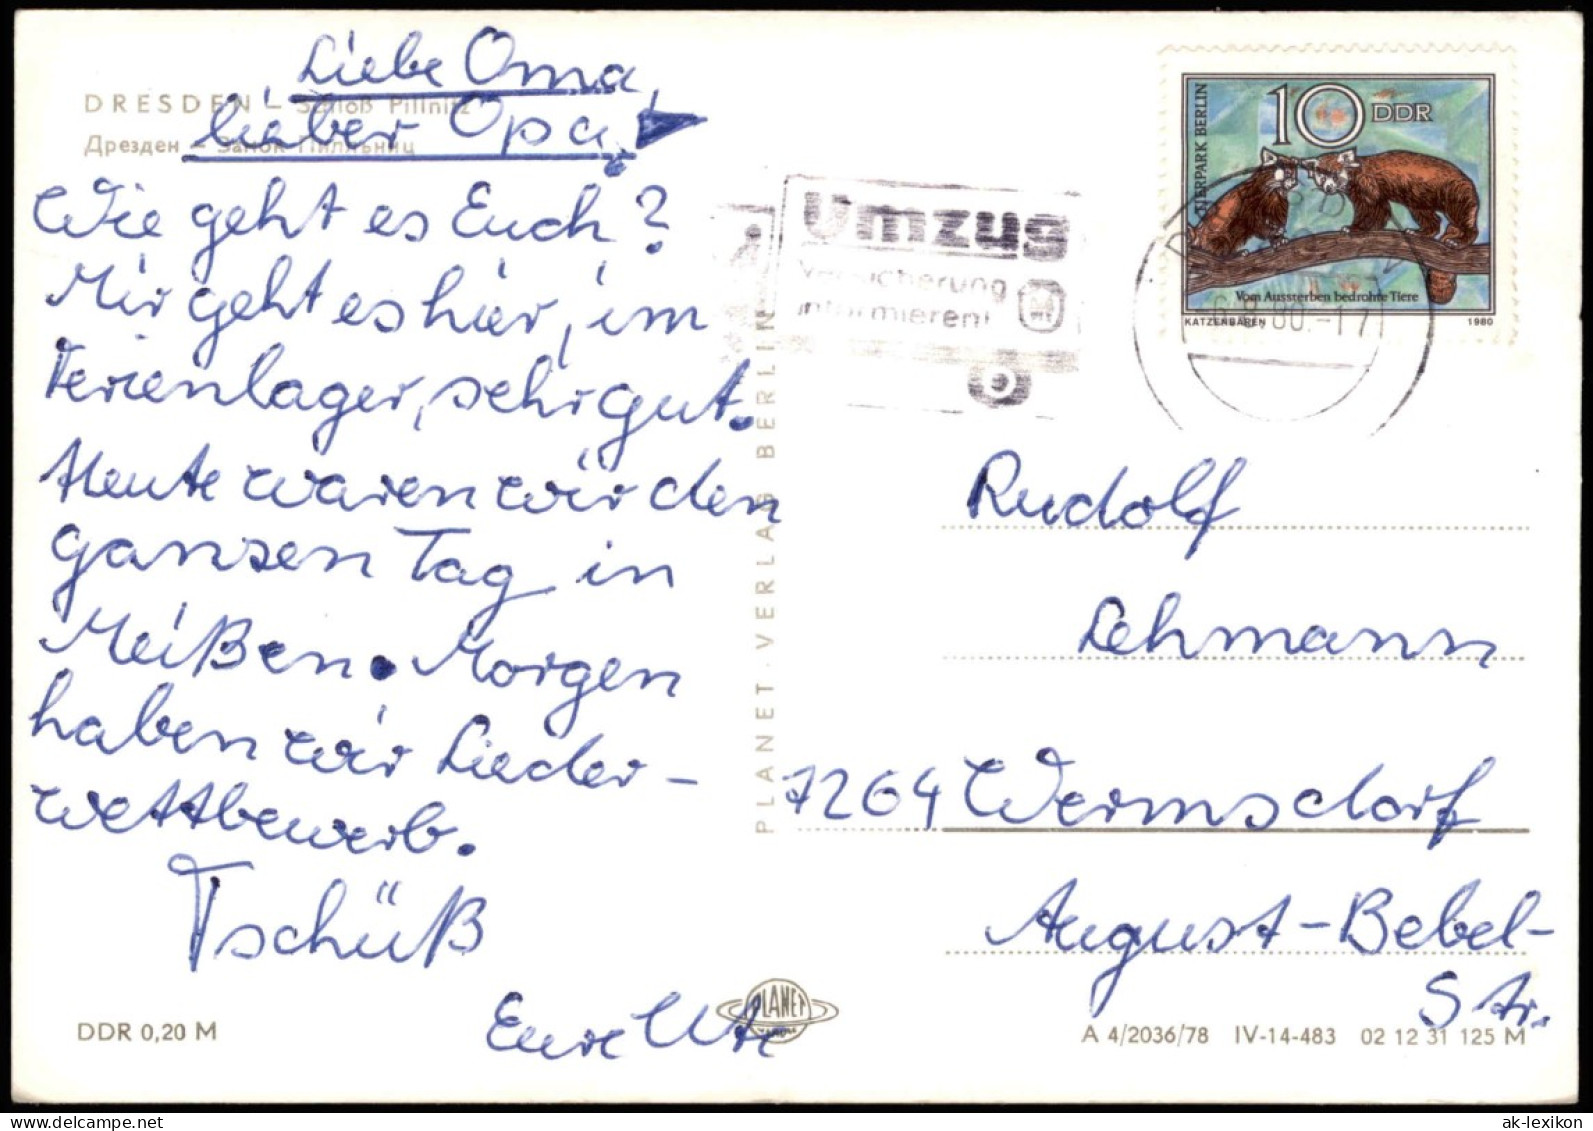 Liebe Oma,
lieber Opa!
DRESDEN – Schloß Pillnitz
Дрезден – Замок Пилльниц
Wie geht es Euch?
Mir geht es hier, im
Ferienlager, sehr gut.
Heute waren wir den
ganzen Tag in
Meißen. Morgen
haben wir Lieder-
wettbewerb.
Tschüß
Eure Ute
DDR 0,20 M
PLANET-VERLAG BERLIN
PLANET
Umzug
Versicherung
informieren!
TIERPARK BERLIN
10 DDR
Vom Aussterben bedrohte Tiere
KATZENBÄREN 1980
80.-17
Rudolf
Lehmann
7264 Wermsdorf
August-Bebel-
Str.
A 4/2036/78 IV-14-483 02 12 31 125 M
ak-lexikon